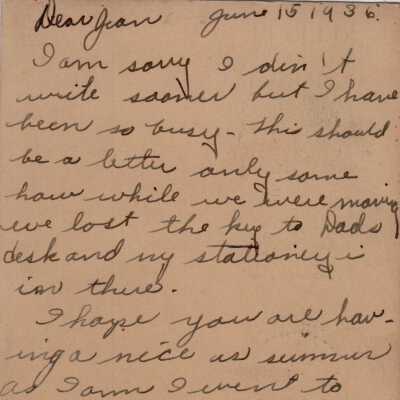 Dear Jean June 15 1936.
I am sorry I din't
write sooner but I have
been so busy - this should
be a letter only some
how while we were moving
we lost the key to Dads
desk and my stationery is
in there.
I hope you are hav-
ing a nice us summer
as I am I went to